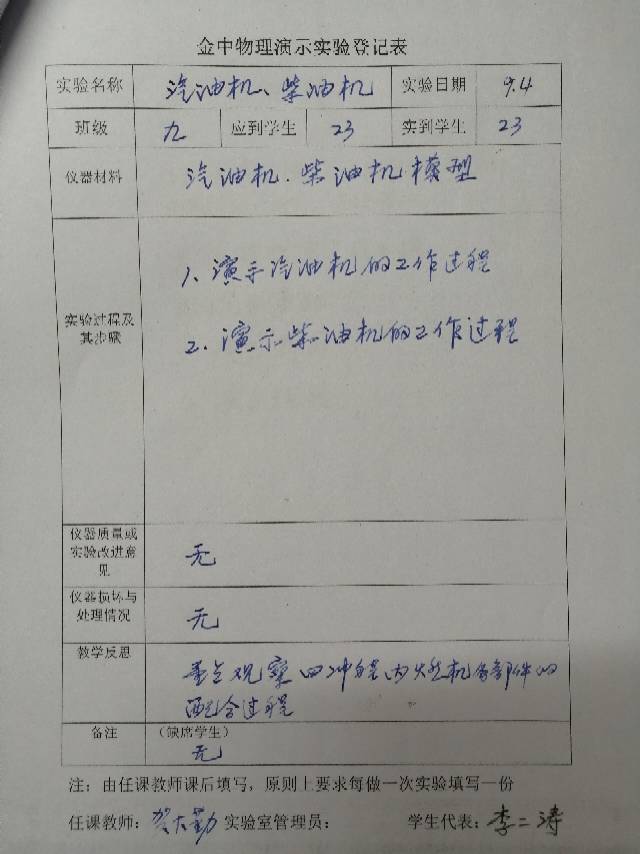 金中物理演示实验登记表
实验名称 汽油机、柴油机 实验日期 9.4
班级 九 应到学生 23 实到学生 23
仪器材料 汽油机、柴油机模型
实验过程及其步骤
1、演示汽油机的工作过程
2、演示柴油机的工作过程
仪器质量或
实验改进意
见
无
仪器损坏与
处理情况
无
教学反思
重点观察四冲程内燃机各部件的
配合过程
备注 (缺席学生)
无
注：由任课教师课后填写，原则上要求每做一次实验填写一份
任课教师：贺大勤 实验室管理员： 学生代表：李二涛